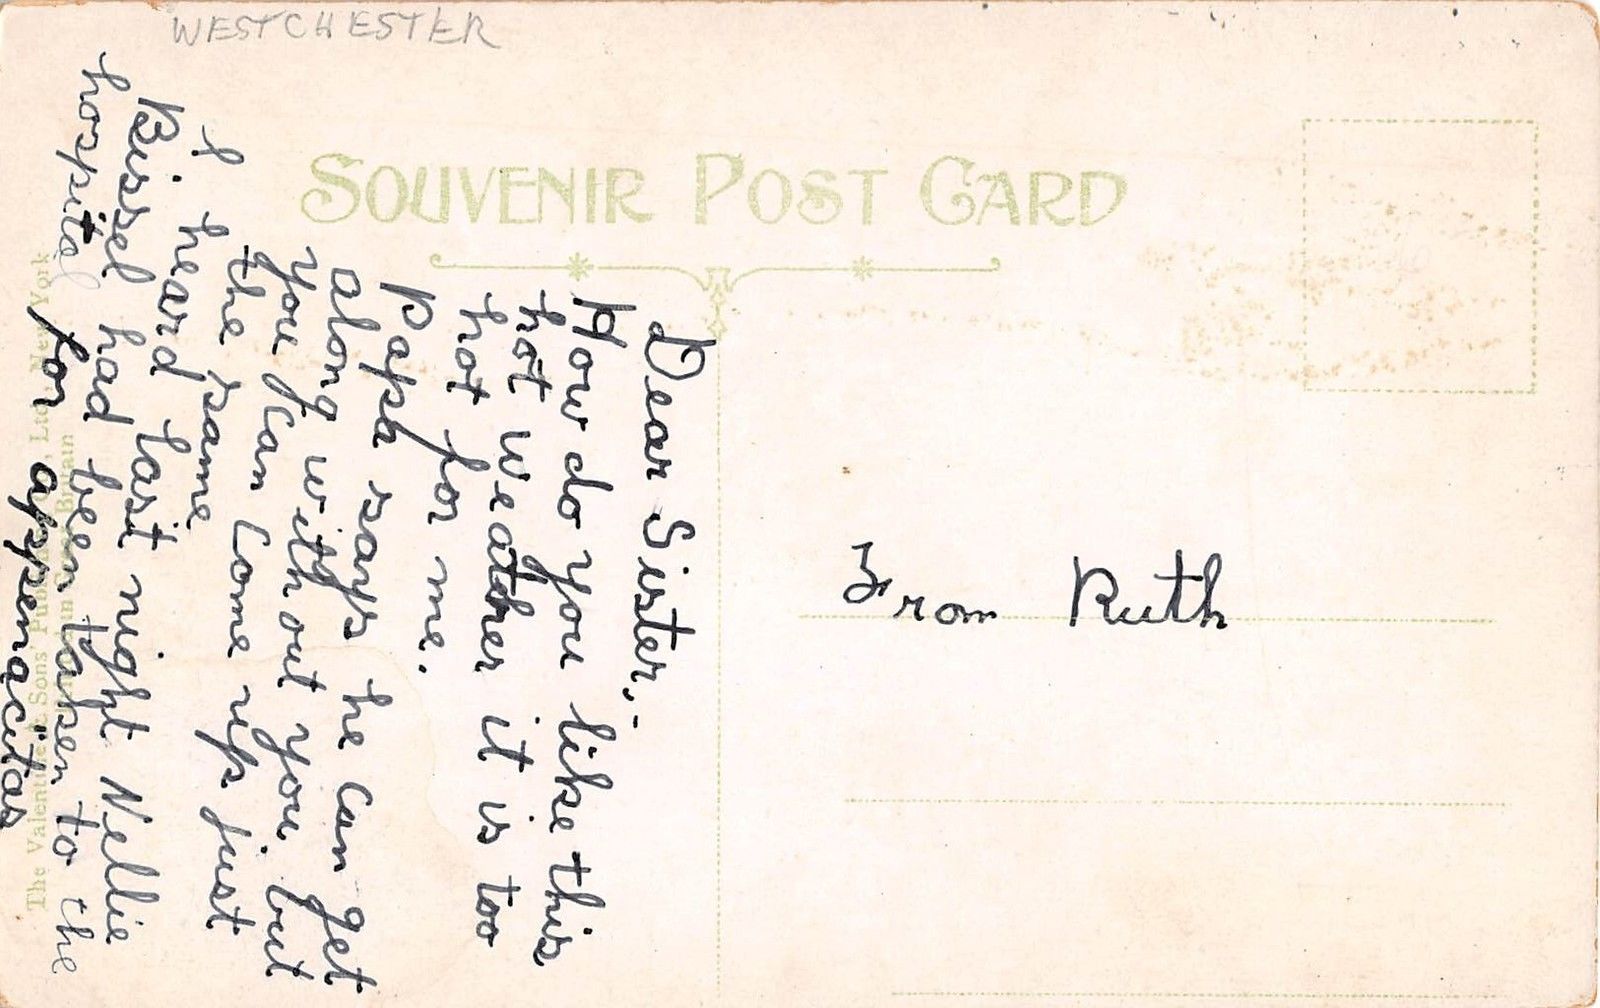 WESTCHESTER
SOUVENIR POST CARD
Dear Sister,-
How do you like this
hot weather it is too
hot for me.
Papa says he can get
along with out you but
you can come up just
the same
I heard last night Nellie
Bissel had been taken to the
hospital for appenacitas
From Ruth
The Valentine & Sons' Publishing Co., Ltd., New York
Printed in Great Britain